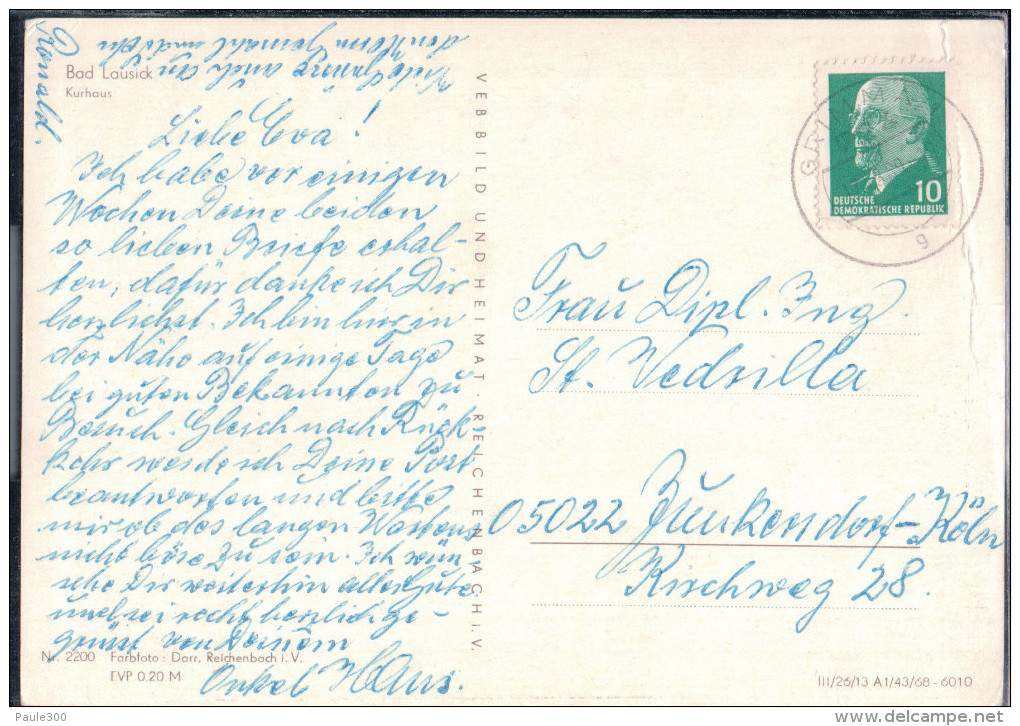 Bad Lausick
Kurhaus
Liebe Eva!
Ich habe vor einigen
Wochen Deine beiden
so lieben Briefe erhal-
ten, dafür danke ich Dir
herzlichst. Ich bin hier in
der Nähe auf einige Tage
bei guten Bekannten zu
Besuch. Gleich nach Rück-
kehr werde ich Deine Post
beantworten und bitte
mir ob des langen Wartens
nicht böse zu sein. Ich wün
sche Dir weiterhin alles Gute
und sei recht herzlich ge-
grüßt von Deinem
Onkel Hans.
Viele Grüsse auch an
den Herrn Gemahl und Sohn
Ronald.
VEB BILD UND HEIMAT · REICHENBACH i. V.
Nr. 2200 Farbfoto: Darr, Reichenbach i. V.
EVP 0.20 M
GRIMMA
g
DEUTSCHE
DEMOKRATISCHE REPUBLIK
10
Frau Dipl. Ing.
05022
Köln
Kirchweg 28.
III/26/13 A1/43/68 - 6010
Paule300
www.delcampe.net